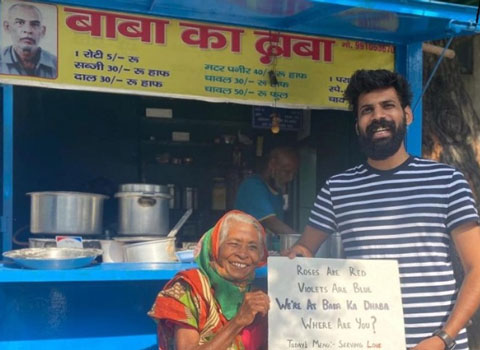 बाबा का ढाबा
1 रोटी 5/- रू
सब्जी 30/- रू हाफ
दाल 30/- रू हाफ
मटर पनीर 40/- रू हाफ
चावल 30/- रू हाफ
चावल 50/- रू फुल
ROSES ARE RED
VIOLETS ARE BLUE
WE'RE AT BABA KA DHABA
WHERE ARE YOU?
TODAY'S MENU:- SERVING LOVE